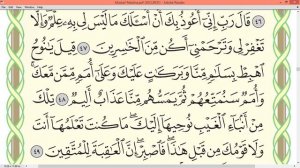 Mushaf Madinah.pdf (SECURED) - Adobe Reader
٤٦ قَالَ رَبِّ إِنِّىٓ أَعُوذُ بِكَ أَنْ أَسْـَٔلَكَ مَا لَيْسَ لِى بِهِۦ عِلْمٌ وَإِلَّا
تَغْفِرْ لِى وَتَرْحَمْنِىٓ أَكُن مِّنَ ٱلْخَٰسِرِينَ ٤٧ قِيلَ يَٰنُوحُ
ٱهْبِطْ بِسَلَٰمٍ مِّنَّا وَبَرَكَٰتٍ عَلَيْكَ وَعَلَىٰٓ أُمَمٍ مِّمَّن مَّعَكَۚ
وَأُمَمٌ سَنُمَتِّعُهُمْ ثُمَّ يَمَسُّهُم مِّنَّا عَذَابٌ أَلِيمٌ ٤٨ تِلْكَ
مِنْ أَنۢبَآءِ ٱلْغَيْبِ نُوحِيهَآ إِلَيْكَۖ مَا كُنتَ تَعْلَمُهَآ أَنتَ
وَلَا قَوْمُكَ مِن قَبْلِ هَٰذَاۖ فَٱصْبِرْۖ إِنَّ ٱلْعَٰقِبَةَ لِلْمُتَّقِينَ ٤٩